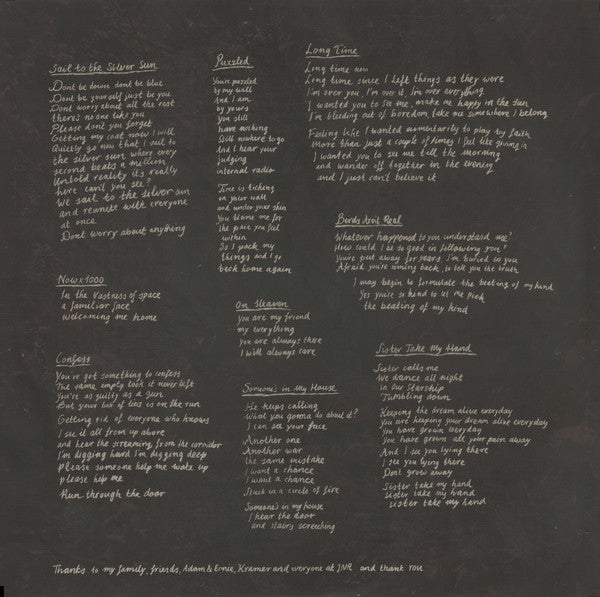 Sail to the Silver Sun
Dont be down dont be blue
Dont be yourself just be you
Dont worry about all the rest
theres no one like you
Please dont you forget
Getting my coat now I will
Quietly go now that I sail to
the silver sun where every
second beats a million
Untold reality its really
here can't you see?
We sail to the silver sun
and reunite with everyone
at once
Dont worry about anything
Now x 1000
In the Vastness of space
a familiar face
welcoming me home
Confess
You've got something to confess
The same empty look it never left
You're as guilty as a gun
But your box of lies is on the run
Getting rid of everyone who knows
I see it all from up above
and hear the screaming, from the corridor
I'm digging hard I'm digging deep
please someone help me wake up
please help me
Run through the door
Puzzled
You're puzzled
by my wall
And I am
by yours
You still
have nothing
Still nowhere to go
And I hear your
judging
internal radio
Time is ticking
on your wall
and under your skin
You blame me for
the pain you feel
within
So I pack my
things and I go
back home again
On Heaven
you are my friend
my everything
you are always there
I will always care
Someone's in My House
He keeps calling
What you gonna do about it?
I can see your face
Another one
Another war
the same mistake
I want a chance
I want a chance
Stuck in a circle of fire
Someone's in my house
I hear the door
and stairs screeching
Long Time
Long time now
Long time since I left things as they were
I'm over you, I'm over it, I'm over everything
I wanted you to see me, make me happy in the sun
I'm bleeding out of boredom, take me somewhere I belong
Feeling like I wanted momentarily to play by faith
More than just a couple of times I feel like giving in
I wanted you to see me till the morning
and wander off together in the evening
and I just can't believe it
Birds Aint Real
Whatever happened to you understand me?
How could I be so good in following you?
You're put away for years, I'm buried in you
Afraid you're coming back, to tell you the truth
I may begin to formulate the beating of my kind
Yes you're so kind to let me pick
the beating of my kind
Sister Take My Hand
Sister calls me
We dance all night
in our Starship
Tumbling down
Keeping the dream alive everyday
You are keeping your dream alive everyday
You have grown everyday
You have grown all your pain away
And I see you lying there
I see you lying there
Dont grow away
Sister take my hand
sister take my hand
sister take my hand
Thanks to my family, friends, Adam & Ernie, Kramer and everyone at JNR and thank you